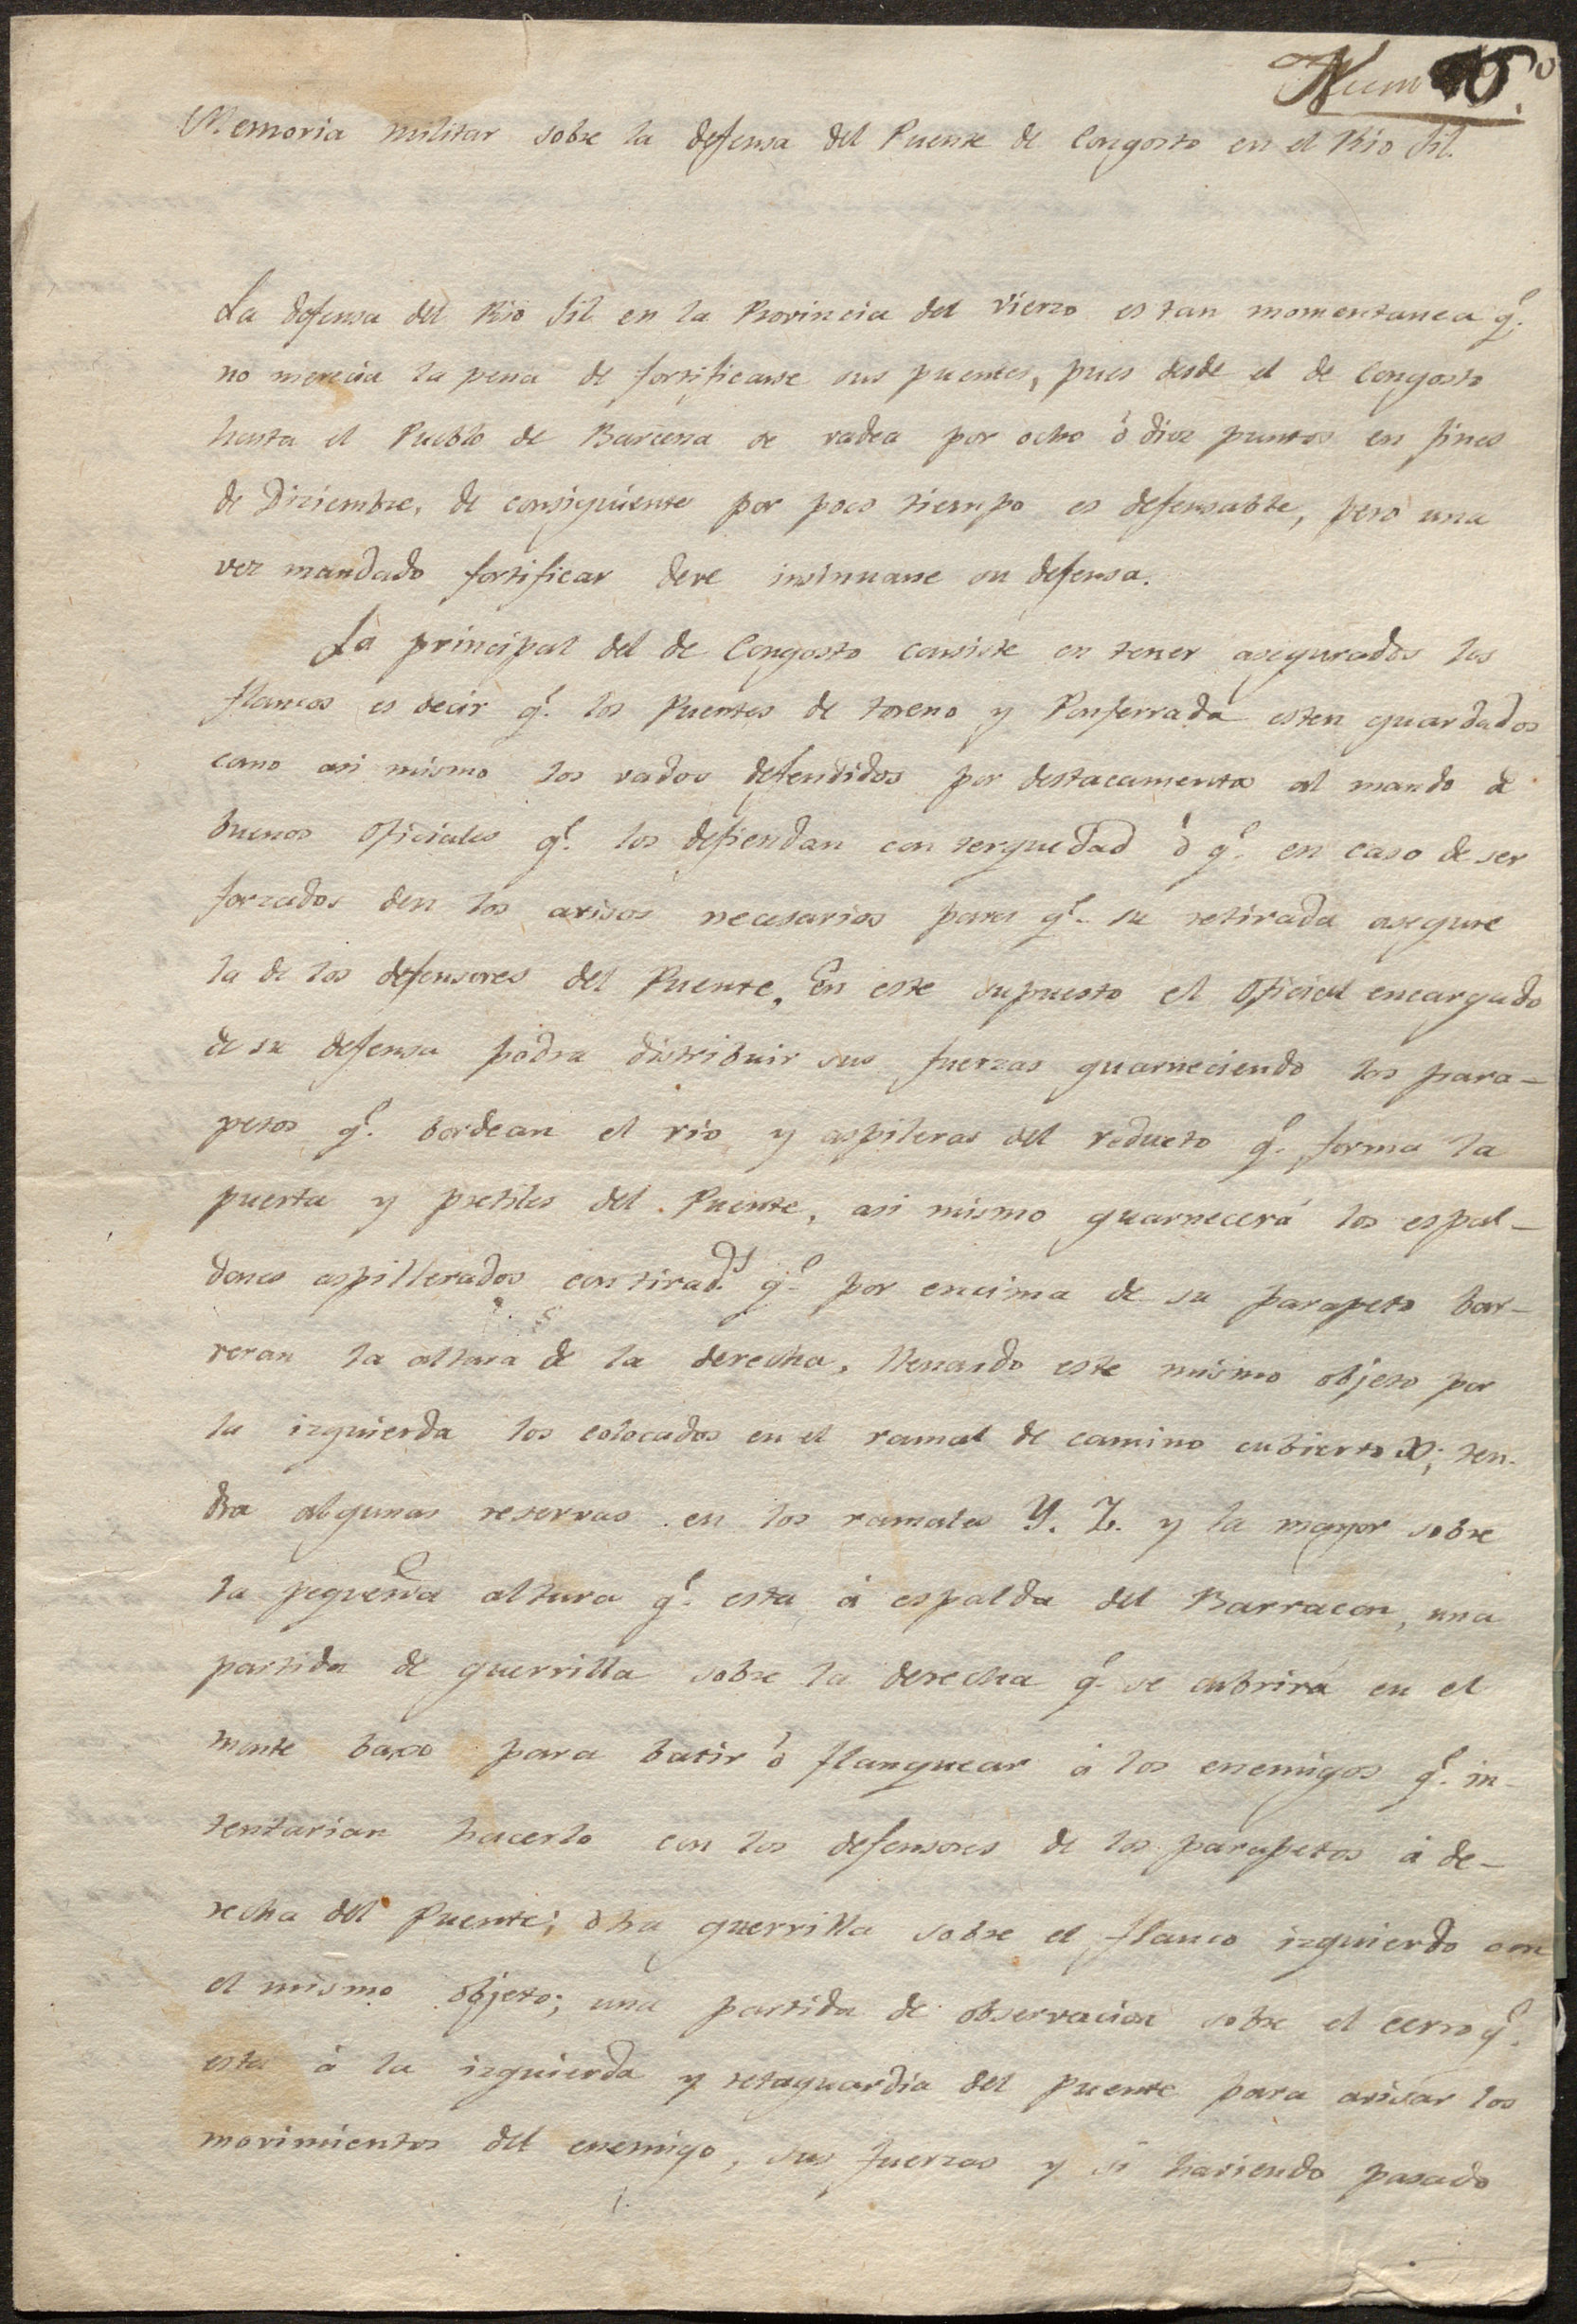 Num 6.º
Memoria militar sobre la defensa del Puente de Congosto en el Rio Sil.
La defensa del Rio Sil en la Provincia del Vierzo es tan momentanea q.e
no merecia la pena de fortificarse sus puentes, pues desde el de Congosto
hasta el Pueblo de Barcena se vadea por ocho ò diez puntos en fines
de Diziembre, de consiguiente por poco tiempo es defensable, pero una
vez mandado fortificar deve insinuarse su defensa.
La principal del de Congosto consiste en tener asegurados los
flancos es decir q.e los Puentes de Toreno y Ponferrada esten guardados
como asi mismo los vados defendidos por destacamentos al mando de
buenos oficiales q.e los defiendan con terquedad ò q.e en caso de ser
forzados den los avisos necesarios para q.e su retirada asegure
la de los defensores del Puente. En este supuesto el oficial encargado
de su defensa podra distribuir sus fuerzas guarneciendo los para-
petos q.e bordean el rio y aspileras del reducto q.e forma la
puerta y pretiles del Puente, asi mismo guarnecerá los espal-
dones aspillerados con tirad.s q.e por encima de su parapeto bar-
reran la altura de la derecha, llenando este mismo objeto por
la izquierda los colocados en el ramal de camino cubierto X; ten-
dra algunas reservas en los ramales Y. Z. y la mayor sobre
la pequeña altura q.e esta á espalda del Barracon, una
partida de guerrilla sobre la derecha q.e se cubrirá en el
monte baxo para batir ò flanquear á los enemigos q.e in-
tentarian hacerlo con los defensores de los parapetos á de-
recha del Puente; otra guerrilla sobre el flanco izquierdo con
el mismo objeto; una partida de observacion sobre el cerro q.e
esta á la izquierda y retaguardia del puente para avisar los
movimientos del enemigo, sus fuerzas y si haviendo pasado